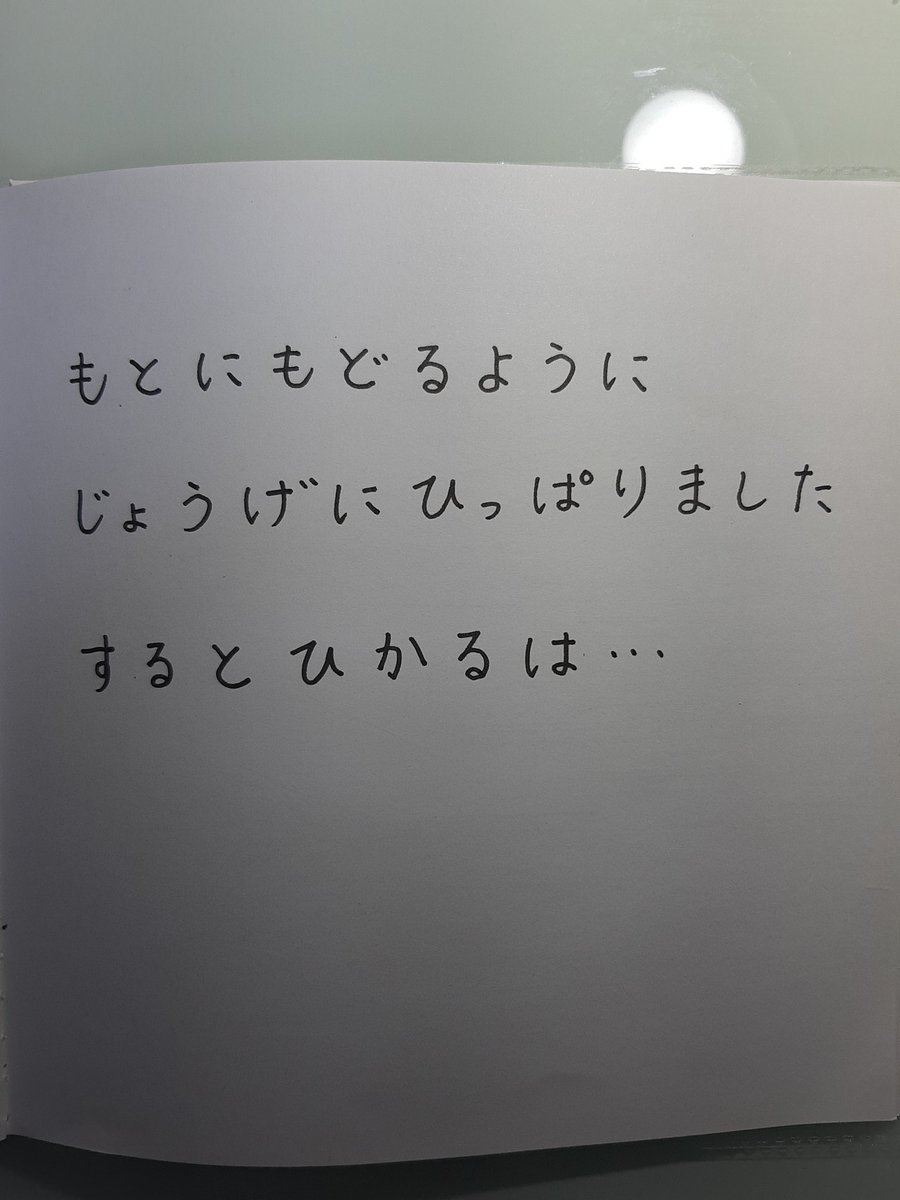 もとにもどるように
じょうげにひっぱりました
するとひかるは…